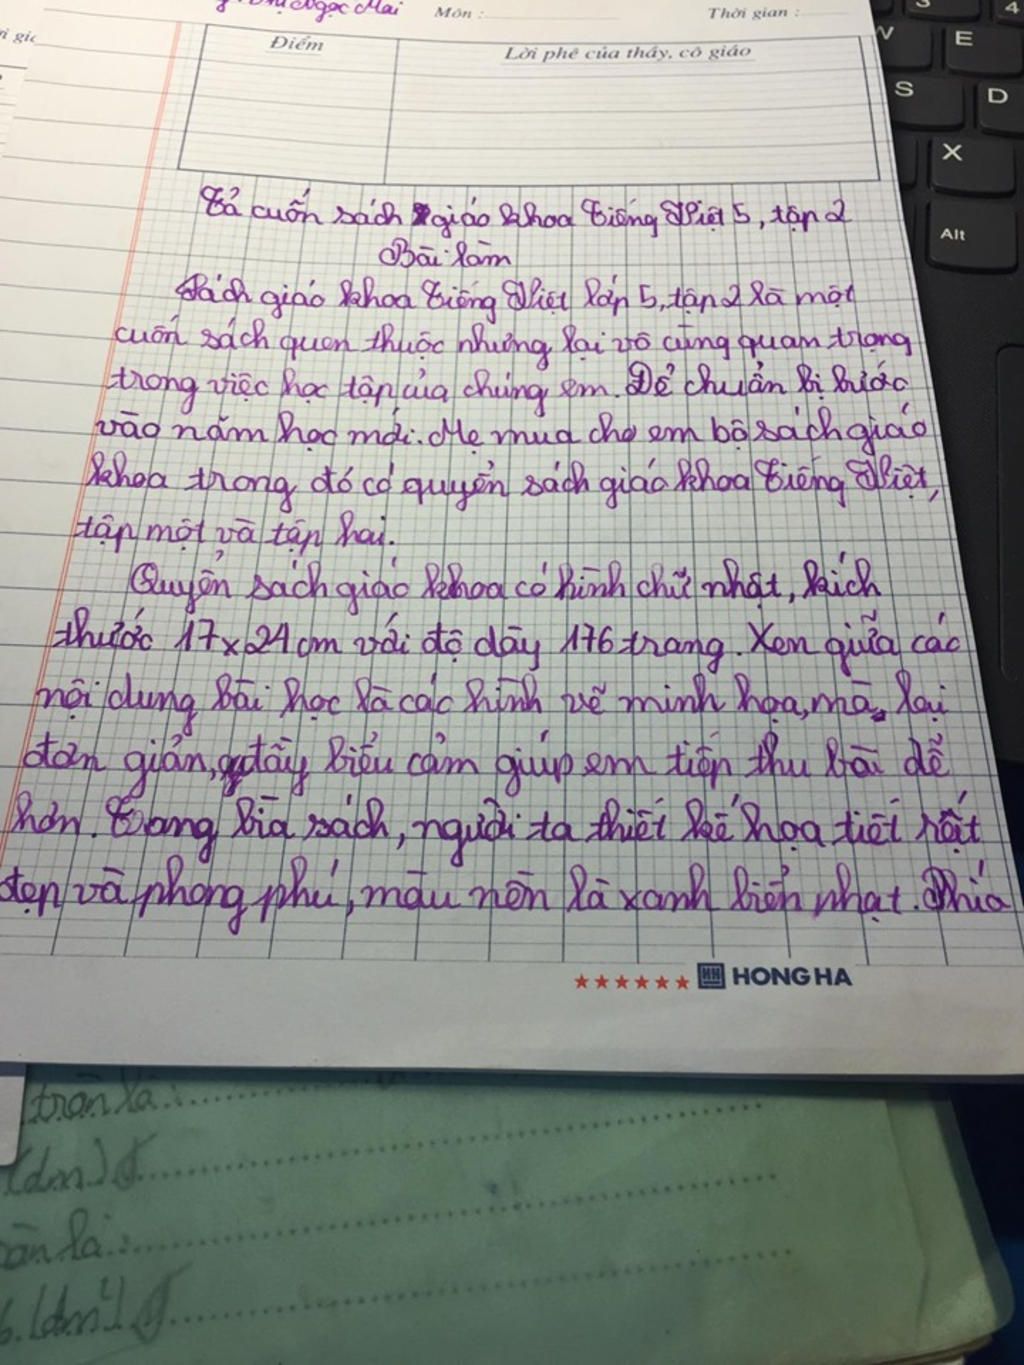 Ngọc Mai Môn : Thời gian :
Điểm
Lời phê của thầy, cô giáo
Tả cuốn sách giáo khoa Tiếng Việt 5, tập 2
Bài làm
Sách giáo khoa Tiếng Việt lớp 5, tập 2 là một
cuốn sách quen thuộc nhưng lại vô cùng quan trọng
trong việc học tập của chúng em. Để chuẩn bị bước
vào năm học mới. Mẹ mua cho em bộ sách giáo
khoa trong đó có quyển sách giáo khoa Tiếng Việt,
tập một và tập hai.
Quyển sách giáo khoa có hình chữ nhật, kích
thước 17x24 cm với độ dày 176 trang. Xen giữa các
nội dung bài học là các hình vẽ minh họa, mà lại
đơn giản, đầy biểu cảm giúp em tiếp thu bài dễ
hơn. Trang bìa sách, người ta thiết kế họa tiết rất
đẹp và phong phú, màu nền là xanh biển nhạt. Phía
HH HONG HA
tròn là :
(dm)
là :
W
E
S
D
X
Alt
3
4